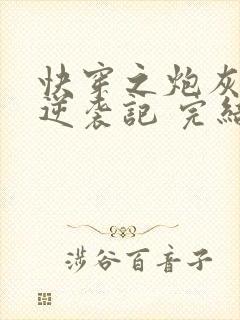 快穿之炮灰
逆袭記 完結
涉谷百音子